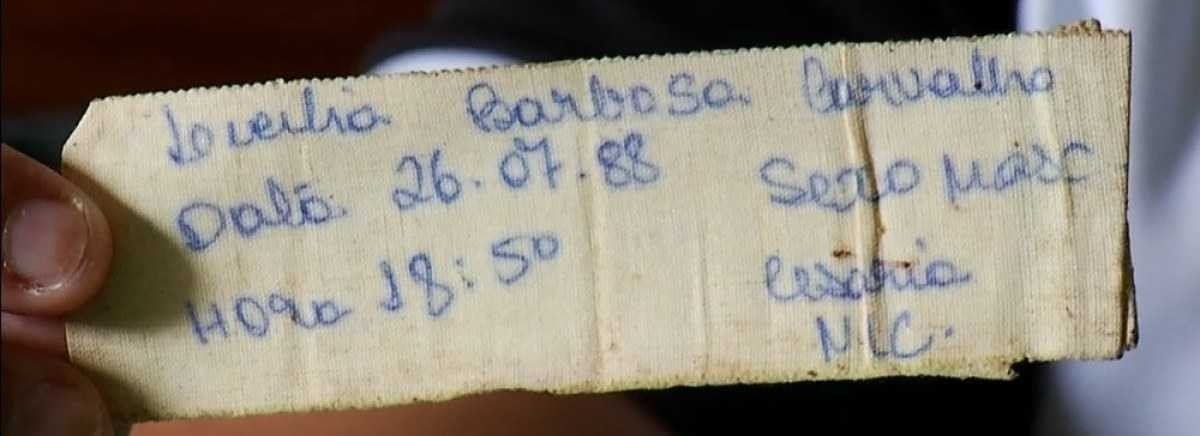 Barbosa Carvalho
Data 26.07.88 Sexo Masc
Hora 18:50 Cesária